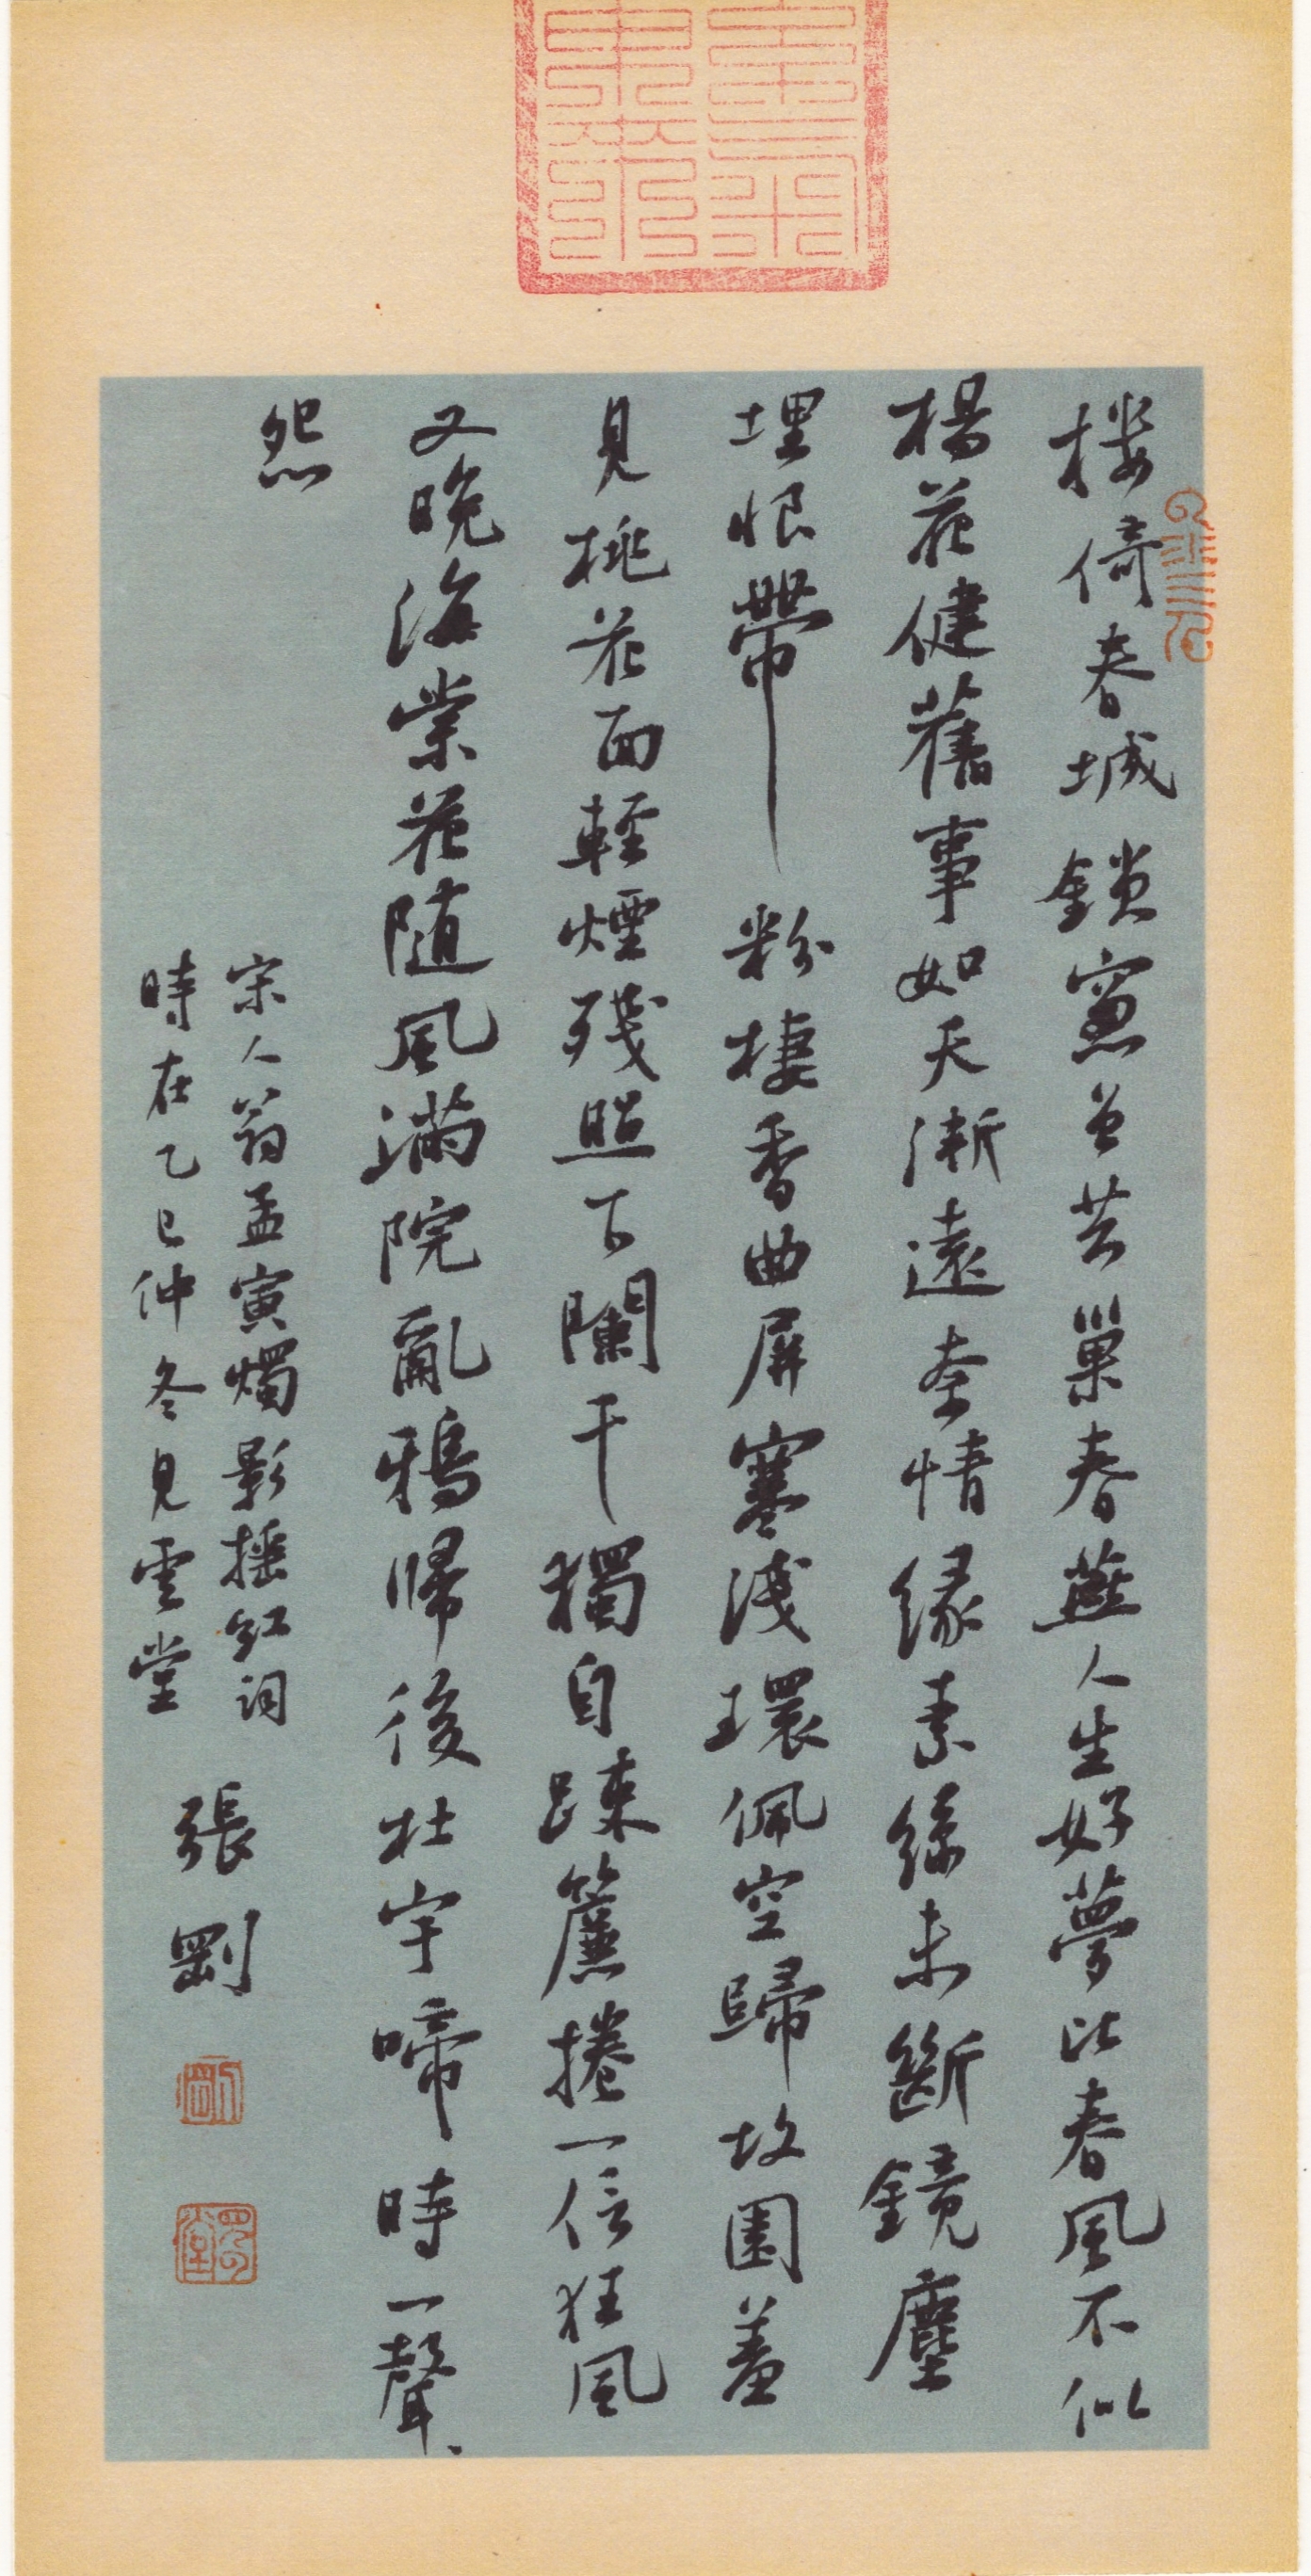 楼倚春城鎖窻曾共巢春燕人生好夢比春風不似
楊花健舊事如天漸遠奈情緣素絲未斷鏡塵
埋恨帶粉棲香曲屏寒淺環佩空歸故園羞
見桃花面輕煙殘照下闌干獨自踈簾捲一信狂風
又晚海棠花隨風滿院亂鴉帰後杜宇啼時一聲、
怨
宋人翁孟寅燭影摇红词
時在乙巳仲冬見雲堂
張剛